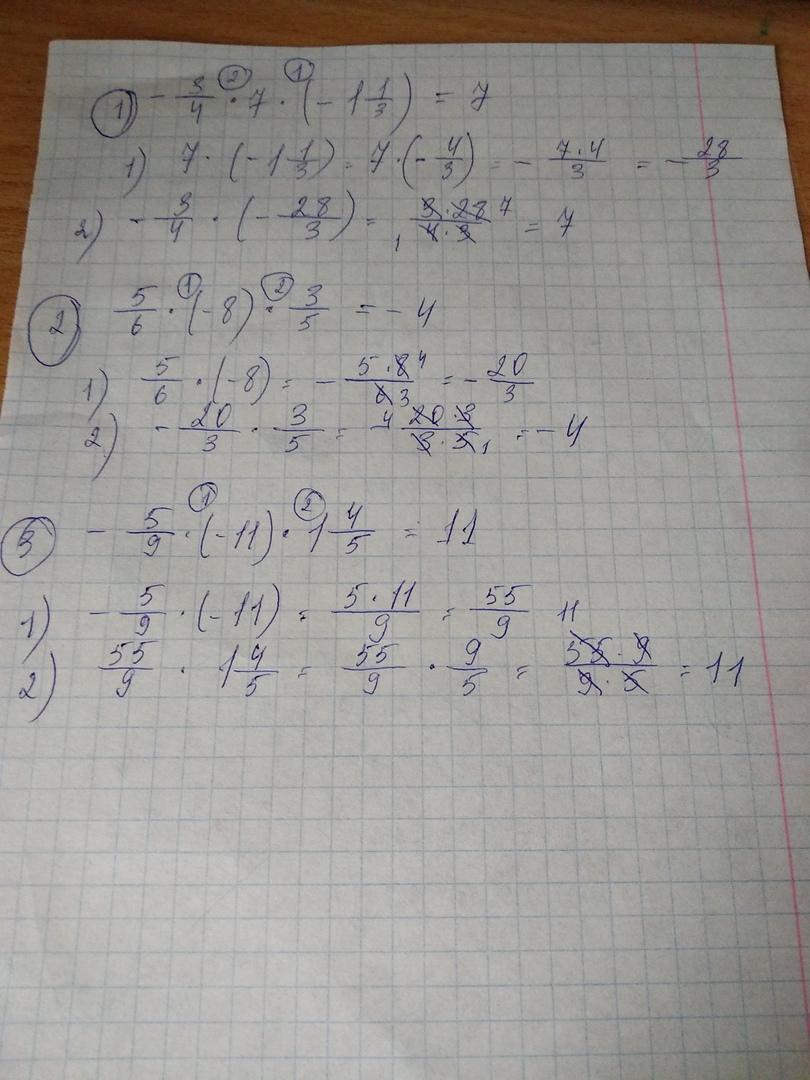 1) - 3/4 · 7 · (-1 1/3) = 7
1) 7 · (-1 1/3) = 7 · (- 4/3) = - 7·4/3 = - 28/3
2) - 3/4 · (- 28/3) = 3·28/4·3 = 7
2 5/6 · (-8) · 3/5 = -4
1) 5/6 · (-8) = - 5·8/6 = - 20/3
2) - 20/3 · 3/5 = - 20·3/3·5 = -4
3 - 5/9 · (-11) · 1 4/5 = 11
1) - 5/9 · (-11) = 5·11/9 = 55/9
2) 55/9 · 1 4/5 = 55/9 · 9/5 = 55·9/9·5 = 11